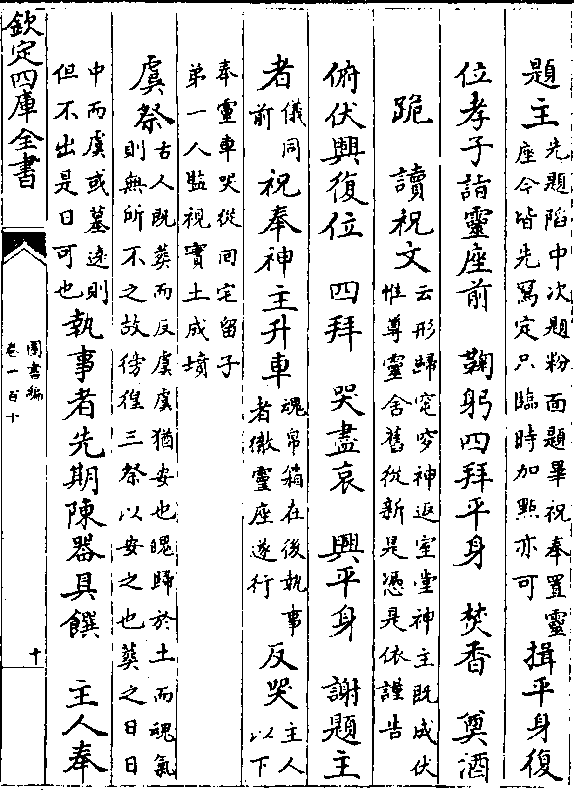 題主先題陷中次題粉面題畢祝奉置靈座今皆先寫定只臨時加點亦可 揖平身復
位孝子詣靈座前 鞠躬四拜平身 焚香 奠酒
跪 讀祝文云形歸窀穸神返室堂神主既成伏惟尊靈舍舊從新是憑是依謹告
俯伏興復位 四拜 哭盡哀 興平身 謝題主
者儀同前 祝奉神主升車魂帛箱在後執事者徹靈座遂行 反哭主人以下
奉靈車哭從同宅留子弟一人監視實土成墳
虞祭古人既葬而反虞虞猶安也魄歸於土而魂氣則無所不之故徬徨三祭以安之也葬之日日
中而虞或墓遠則但不出是日可也執事者先期陳器具饌 主人奉
欽定四庫全書
圖書編
卷一百十
十